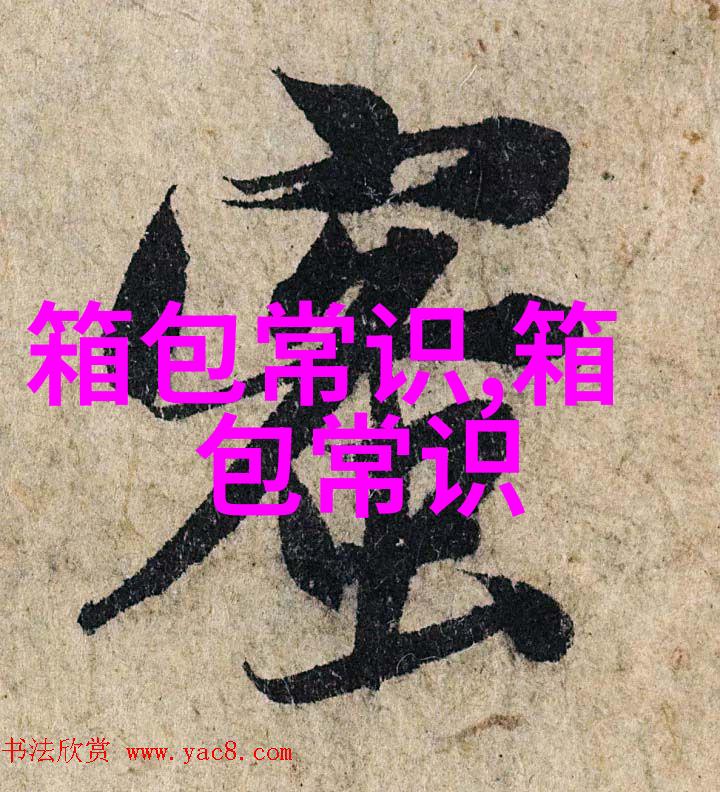 蜜
箱包常识,箱
包常识
书法欣赏 www.yac8.com